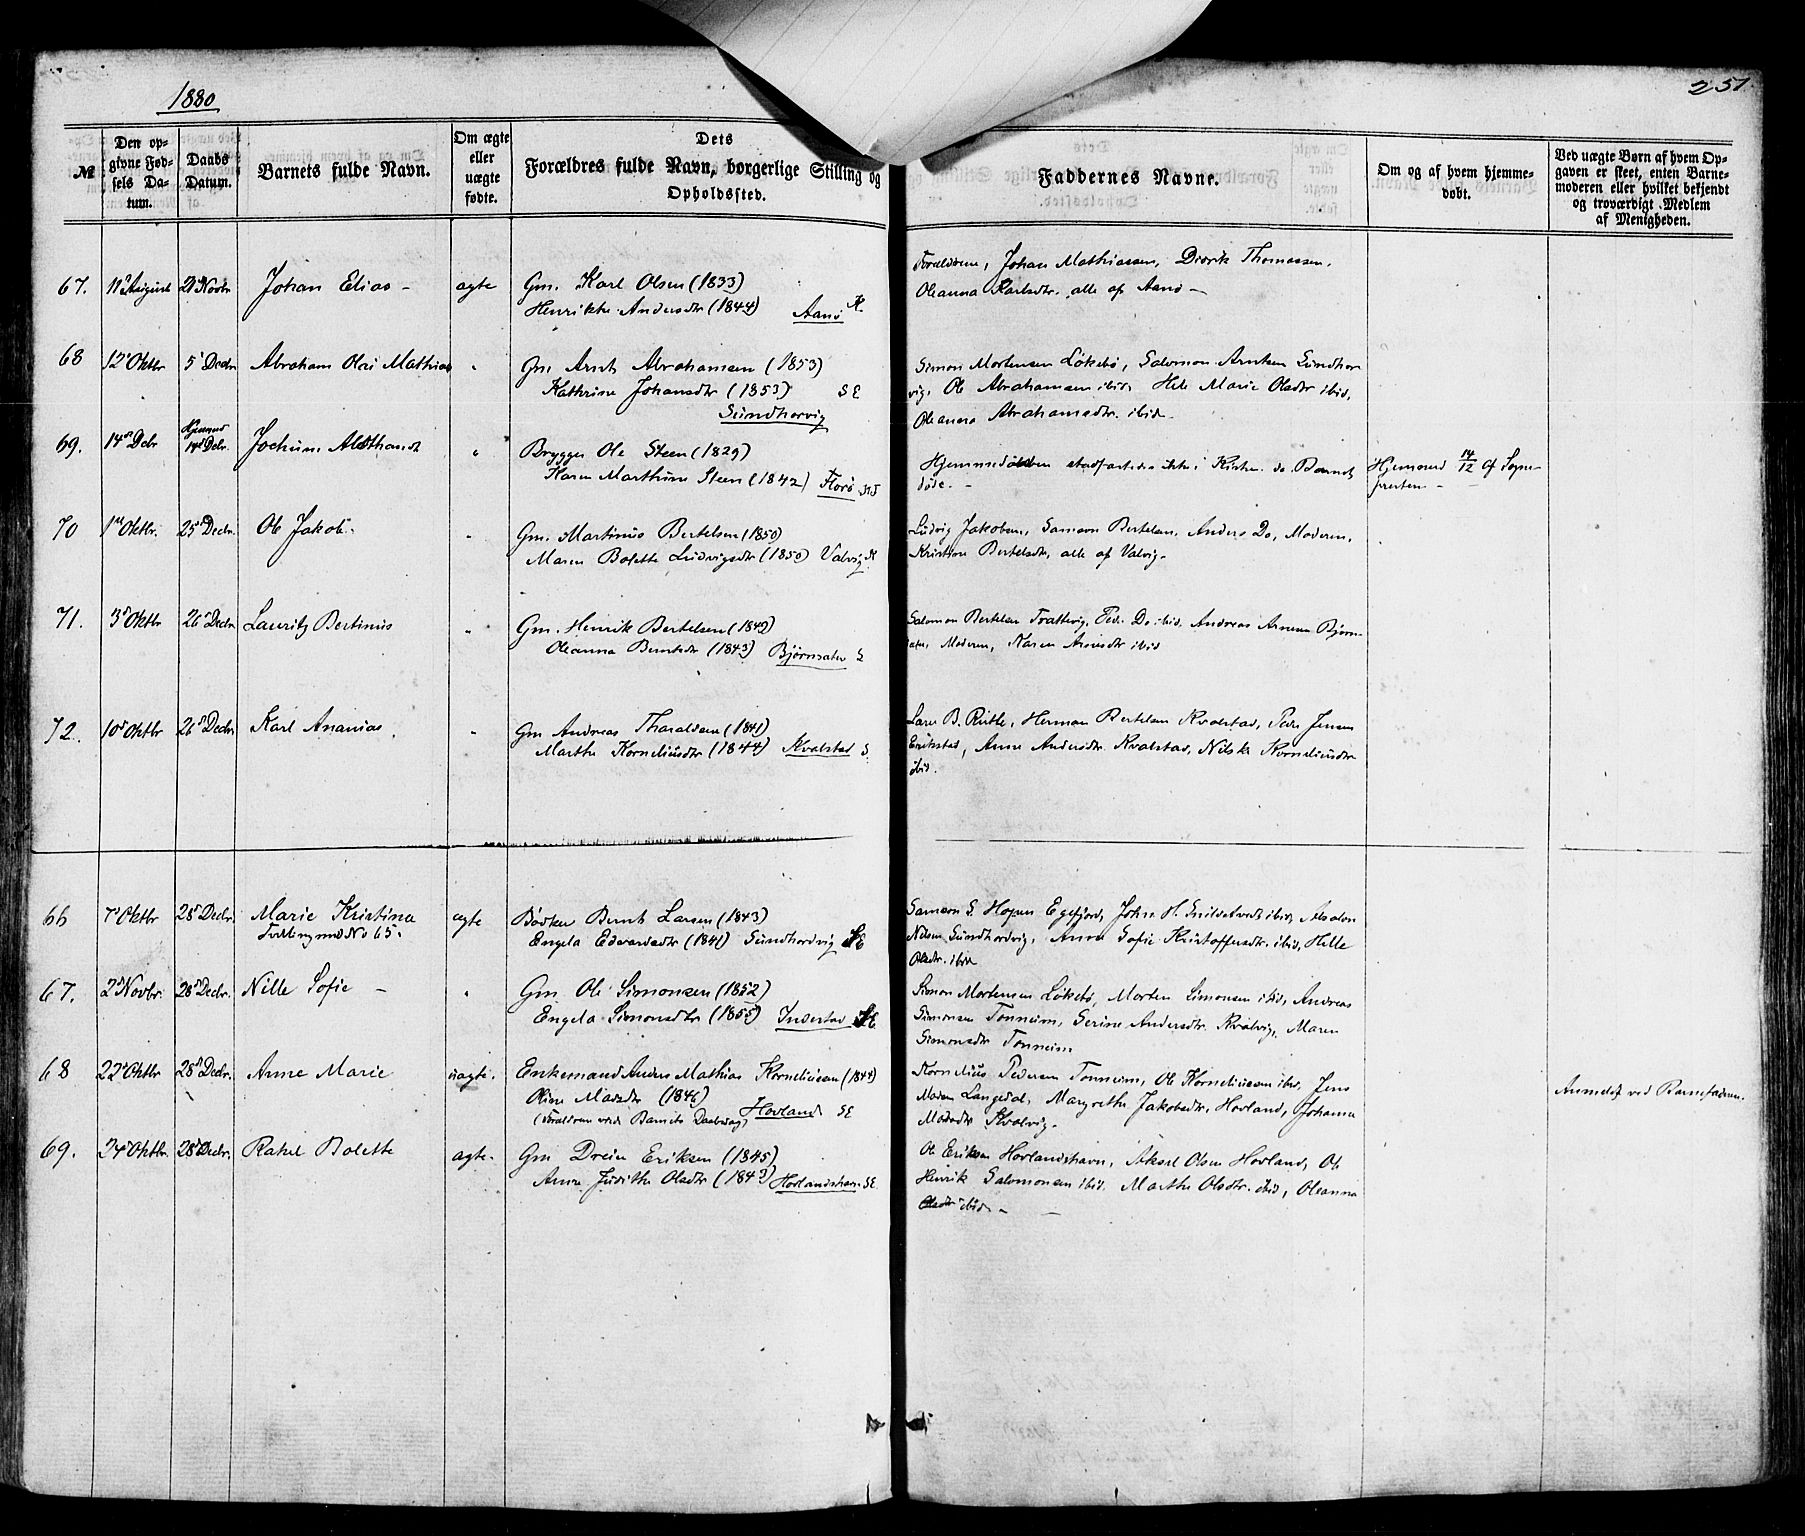 1880
257.
№
Den opgivne Fødsels Datum.
Daabs Datum.
Barnets fulde Navn.
Om ægte eller uægte fødte.
Dets Forældres fulde Navn, borgerlige Stilling og Opholdssted.
Faddernes Navne.
Om og af hvem hjemmedøbt.
Ved uægte Børn af hvem Opgaven er skeet, enten Barnemoderen eller hvilket bekjendt og troværdigt Medlem af Menigheden.
67. 11 August 21 Novbr Johan Elias – ægte Gm. Karl Olsen (1833)
Henrikke Andersdtr (1844) Aanø K.
Forældrene, Johan Mathiassen, Didrik Thomassen,
Oleanna Karlsdtr. alle af Aanø –
68 12 Oktbr 5 Decbr Abraham Olai Mathias " Gm Arnt Abrahamsen (1853)
Kathrine Johansdtr (1853) SE
Sundhorvig
Simon Mortensen Løkebø, Salomon Arntsen Sundhor
vig, Ole Abrahamsen ibid, Hele Marie Olsdtr ibid,
Oleanna Abrahamsdtr. ibid.
69. 14d Decbr Hjemmed 14d Decbr. Jochum " Brygger Ole Steen (1829)
Karen Marthine Steen (1842) Florø
Hjemmedøben stadfæstedes ikke i Kirken, da Barnet
døde. –
Hjemmed 14/12 af Sogne-
præsten –
70 1ste Oktbr. 25d Decbr. Ole Jakob. " Gm. Martinus Bertelsen (1850)
Maren Bolette Ludvigsdtr (1850) Valvig K
Ludvig Jakobsen, Samson Bertelsen, Anders Do, Moderen,
Bertelsdtr, alle af Valvig –
71. 3d Oktbr 26d Decbr Lauritz Bertinus " Gm. Henrik Bertelsen (1842)
Oleanna Berntsdtr (1843) Bjørnsæter S
Salomon Bertelsen Trættevig, Peder Do ibid, Andreas Arnesen Bjørn
sæter, Moderen, Karen Arnesdtr ibid
72. 10d Oktbr 26d Decbr Karl Ananias. " Gm Andreas Tharaldsen (1841)
Marthe Korneliusdtr (1844) Kvalstad S.
Lars B. Hermon Bertelsen Kvalstad, Peder Jensen
Erikstad, Anne Andersdtr. Kvalstad, Nilske Korneliusdtr
ibid.
66 7 Oktbr 28d Decbr. Marie Kristina ægte Bødker Bernt Larsen (1843)
Tvilling med No 65.
Engela Edvardsdtr (1841) Sundhordvig SE
Samson S. Hopen Egefjord, Johs H. ibid, Absalon
Nilsen Sundhordvig, Anna Sofie Kristoffersdtr. ibid, Hille
Olsdtr. ibid
67. 2d Novbr. 28d Decbr. Nille Sofie – " Gm Ole Simonsen (1852)
Engela Simonsdtr (1855) Indestad SE
Simon Mortensen Løkebø, Morten Simonsen ibid, Andreas
Simonsen Tonheim, Serine Andersdtr. Kvalvig, Maren
Simonsdtr Tonheim
68 22d Oktbr 28d Decbr. Anne Marie uægte. Enkemand Anders Mathias Korneliussen (1844)
Oline Madsdtr (1846)
(Forældrene viede Barnets Daabsdag) Hovland SE
Kornelius Pedersen Tonheim, Ole Korneliussen ibid, Jens
Madsen Langedal, Margrethe Jakobsdtr. Hovland, Johanna
Madsdtr Kvalvig.
Anmeldt ved Barnefaderen.
69. 24d Oktbr. 28d Decbr. Rakel Bolette ægte. Gm Drein Eriksen (1845)
Anne Judithe Olsdtr (1843) Hovlandshavn SE.
Ole Eriksen Hovlandshavn, Aksel Olsen Hovland, Ole
Henrik Salomonsen ibid. Marthe Olsdtr. ibid, Oleanna
Olsdtr ibid. –